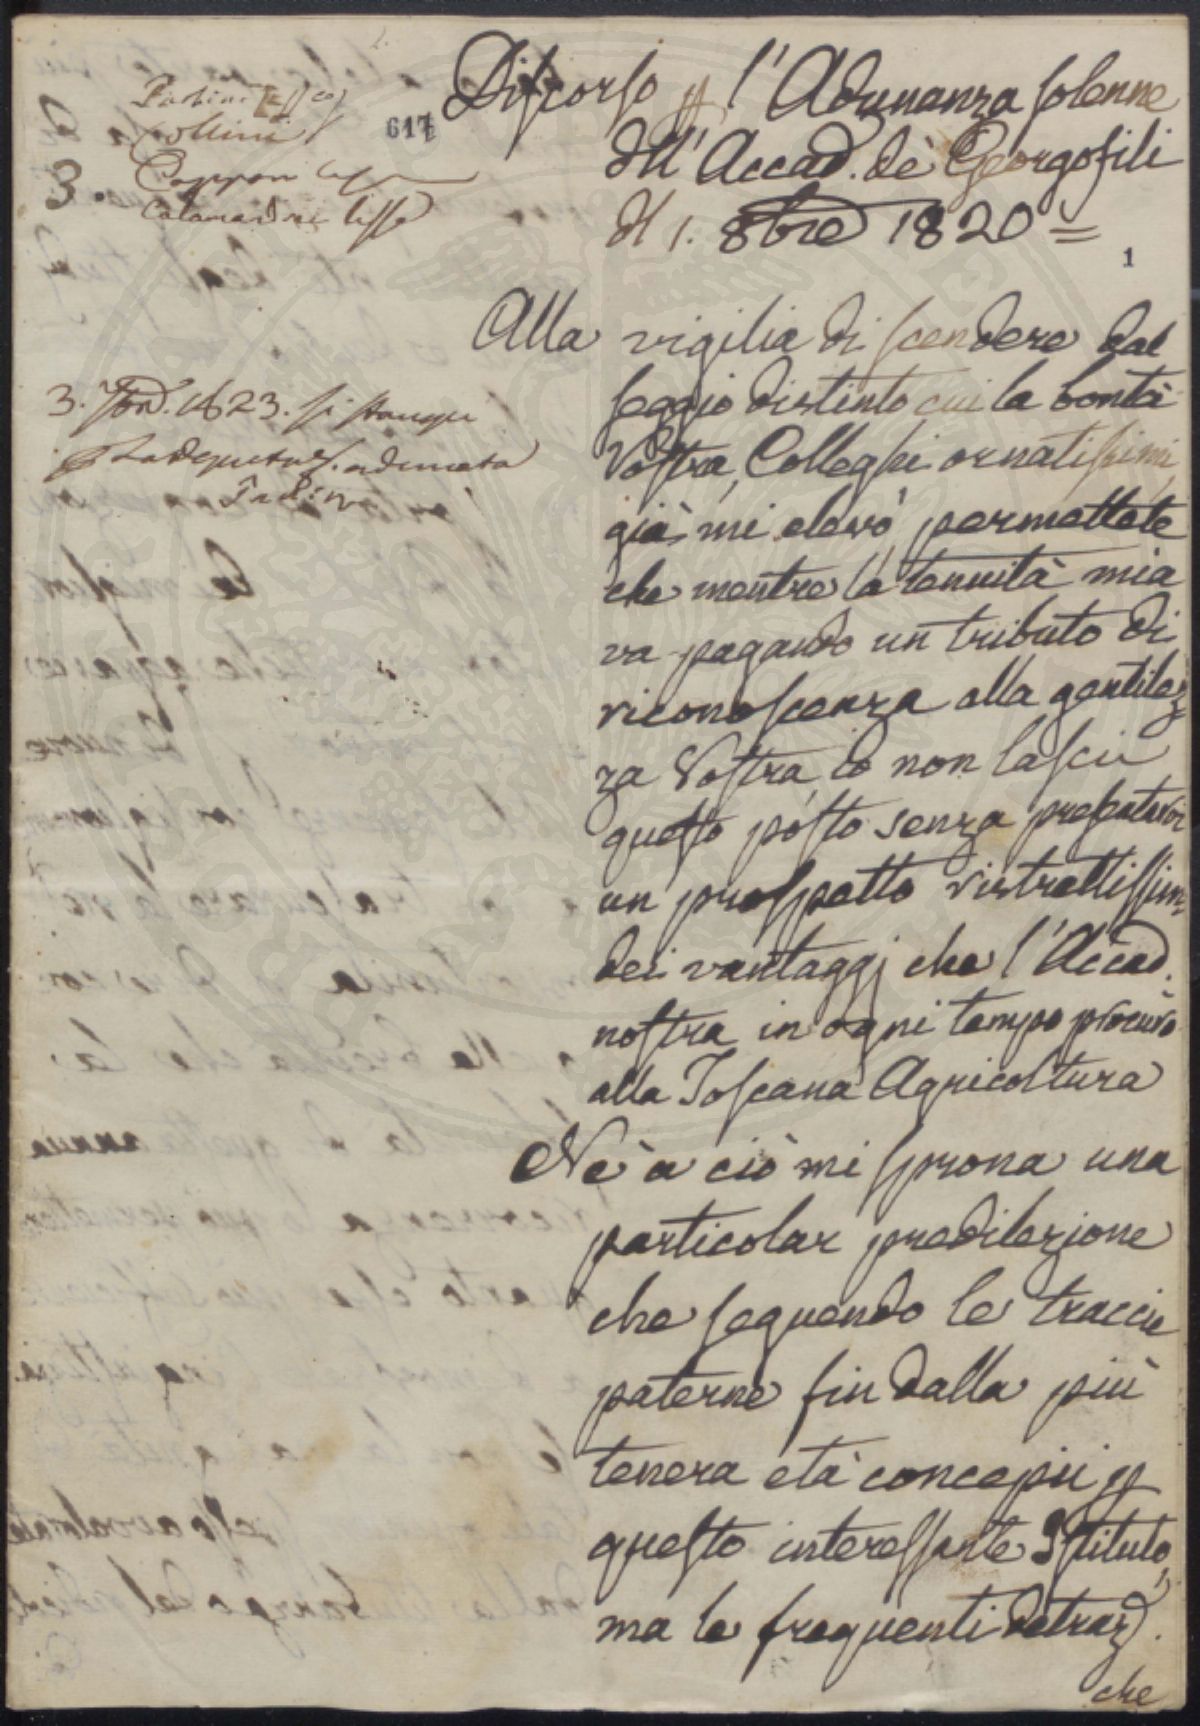 617
Discorso p l'Adunanza solenne
dll' Accad. de' Georgofili
dl 1. 8bre 1820 =
1
3.
Collini
Capponi
Alla vigilia di scendere dal
seggio distinto cui la bontà
Vostra, Colleghi ornatissimi
già mi elevò permettete
che mentre la tenuità mia
va pagando un tributo di
riconoscenza alla gentilez
za Vostra, io non lasci
questo posto senza presentarvi
un prospetto ristrettissimo
dei vantaggj che l'Accad.
nostra in ogni tempo procurò
alla Toscana Agricoltura
Nè a ciò mi sprona una
particolar predilezione
che seguendo le traccie
paterne fin dalla più
tenera età concepii p
questo interessante Istituto,
ma le frequenti detraz.
che
3. 1823. si
adunata